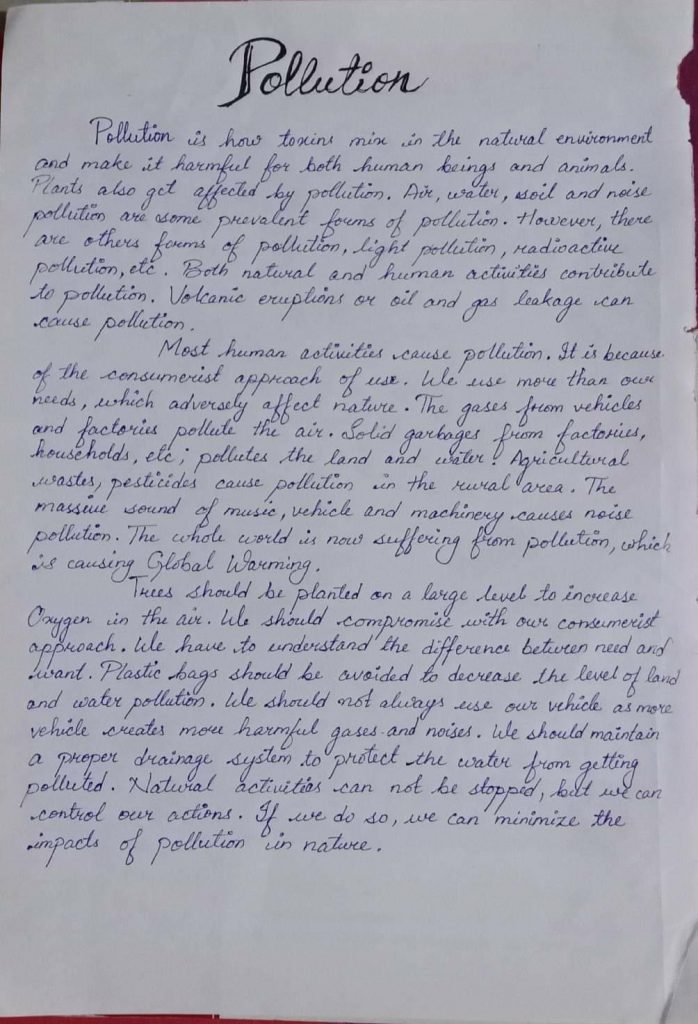 Pollution
Pollution is how toxins mix in the natural environment
and make it harmful for both human beings and animals.
Plants also get affected by pollution. Air, water, soil and noise
pollution are some prevalent forms of pollution. However, there
are others forms of pollution, light pollution, radioactive
pollution, etc. Both natural and human activities contribute
to pollution. Volcanic eruptions or oil and gas leakage can
cause pollution.
Most human activities cause pollution. It is because
of the consumerist approach of use. We use more than our
needs, which adversely affect nature. The gases from vehicles
and factories pollute the air. Solid garbages from factories,
households, etc; pollutes the land and water. Agricultural
wastes, pesticides cause pollution in the rural area. The
massive sound of music, vehicle and machinery causes noise
pollution. The whole world is now suffering from pollution, which
is causing Global Warming.
Trees should be planted on a large level to increase
Oxygen in the air. We should compromise with our consumerist
approach. We have to understand the difference between need and
want. Plastic bags should be avoided to decrease the level of land
and water pollution. We should not always use our vehicle as more
vehicle creates more harmful gases and noises. We should maintain
a proper drainage system to protect the water from getting
polluted. Natural activities can not be stopped, but we can
control our actions. If we do so, we can minimize the
impacts of pollution in nature.